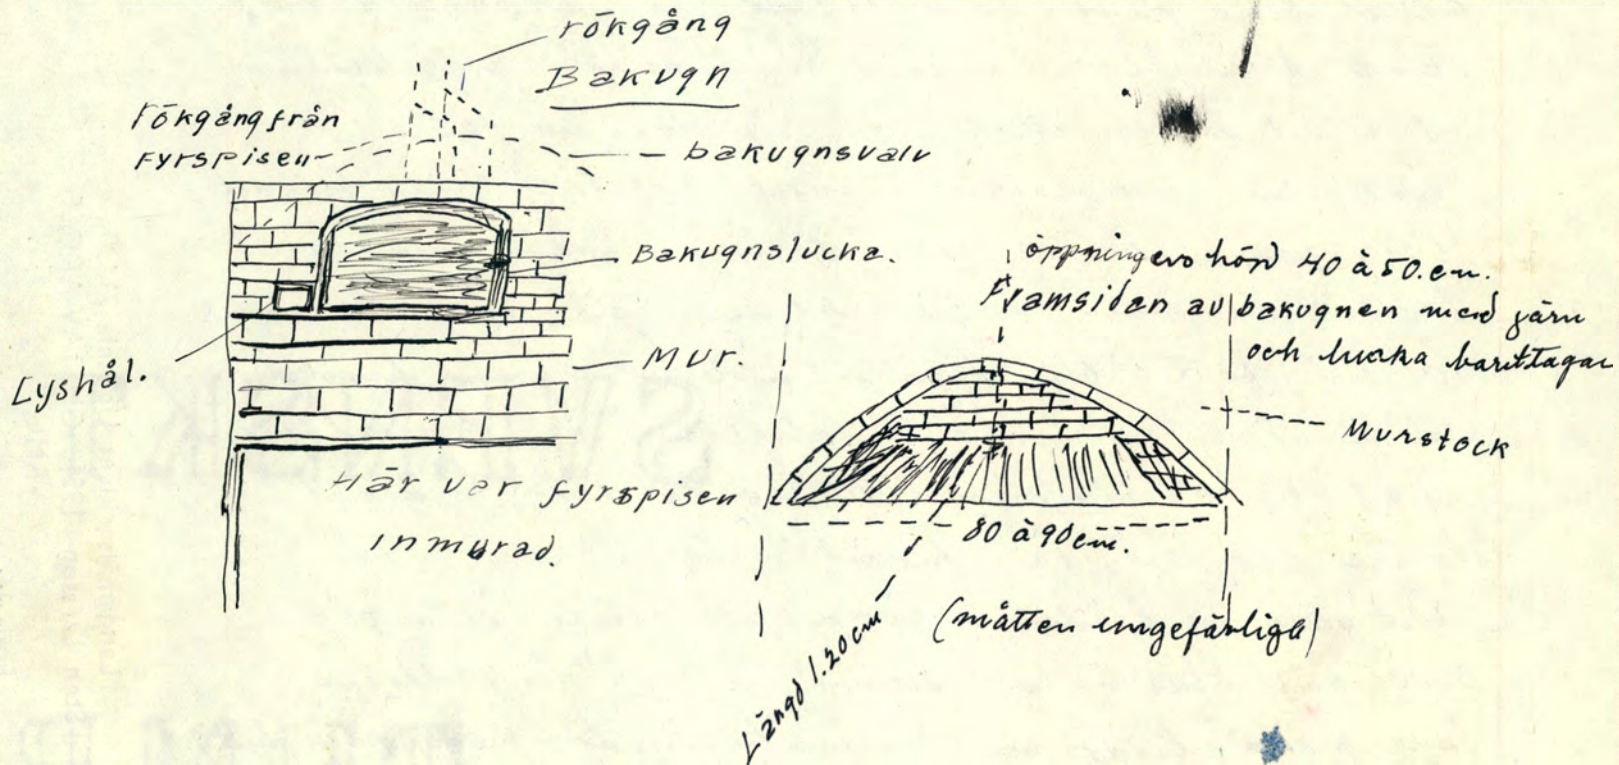 rökgång
Bakugn
rökgång från
fyrspisen
bakugnsvalv
Bakugnslucka.
Lyshål.
Mur.
Här var fyrspisen
inmurad.
öppningens höjd 40 à 50. cm.
Framsidan av bakugnen med järn
och lucka borttagen
Murstock
80 à 90 cm.
Längd 1.20 cm
(måtten ungefärliga)